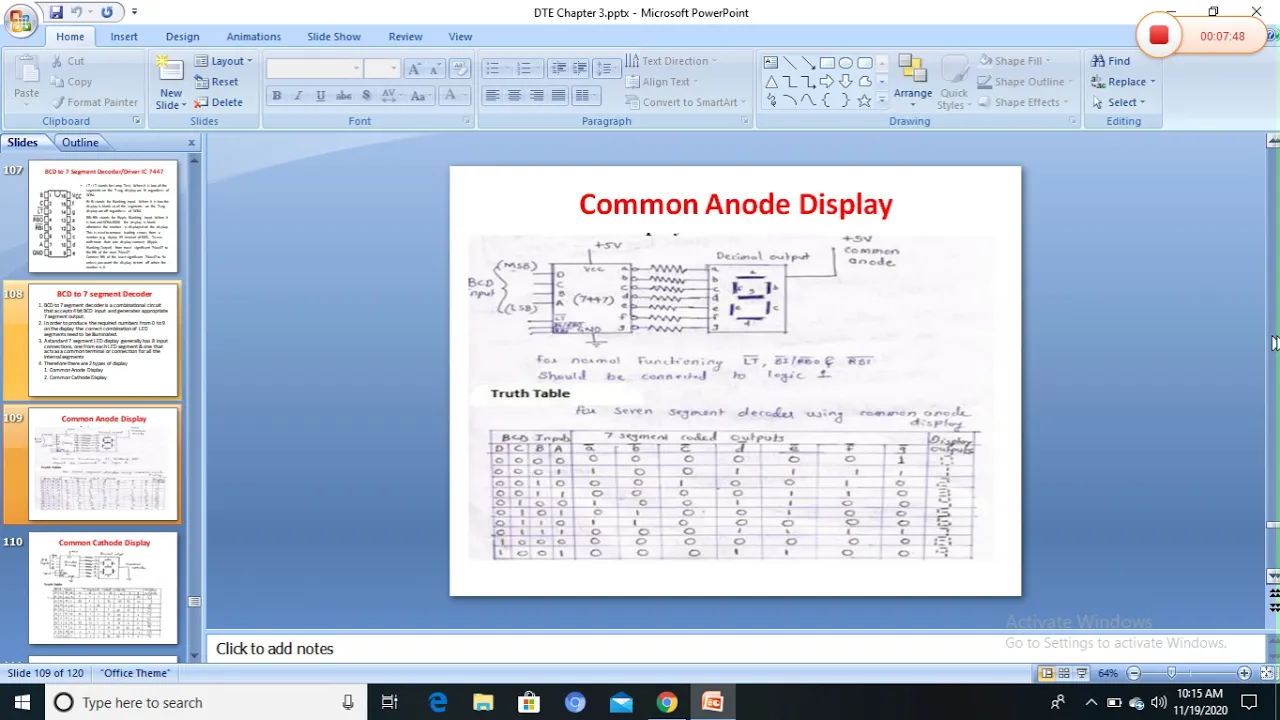 DTE Chapter 3.pptx - Microsoft PowerPoint
00:07:48
Home Insert Design Animations Slide Show Review View
Paste
Cut
Copy
Format Painter
Clipboard
New Slide
Layout
Reset
Delete
Slides
B I U abc S AV Aa A
Font
Text Direction
Align Text
Convert to SmartArt
Paragraph
Arrange
Quick Styles
Shape Fill
Shape Outline
Shape Effects
Drawing
Find
Replace
Select
Editing
Slides Outline x
107
BCD to 7 Segment Decoder/Driver IC 7447
108
BCD to 7 segment Decoder
1. BCD to 7 segment decoder is a combinational circuit
that accepts 4 bit BCD input and generates appropriate
7 segment output.
2. In order to produce the required numbers from 0 to 9
on the display the correct combination of LED
segments need to be illuminated.
3. A standard 7 segment LED display generally has 8 input
connections, one from each LED segment & one that
acts as a common terminal or connection for all the
internal segments
4. Therefore there are 2 types of display
1. Common Anode Display
2. Common Cathode Display
109
Common Anode Display
110
Common Cathode Display
Common Anode Display
+5V
Vcc
+5V
common
anode
Decimal output
BCD
input
(MSB)
(LSB)
D
C
B
A
(7447)
LT
GND
a
b
c
d
e
f
g
a
b
c
d
e
f
g
For normal functioning LT, BI/RBO & RBI
should be connected to logic 1
Truth Table
For seven segment decoder using common anode
display
BCD Inputs 7 segment coded outputs Display outputs
D C B A a b c d e f g
0 0 0 0 0 0 0 0 0 0 1
0 0 0 1 1 0 0 1 1 1 1
0 0 1 0 0 0 1 0 0 1 0
0 0 1 1 0 0 0 0 1 1 0
0 1 0 0 1 0 0 1 1 0 0
0 1 0 1 0 1 0 0 1 0 0
0 1 1 0 1 1 0 0 0 0 0
1 0 0 1 0 0 0 1 1 0 0
Activate Windows
Go to Settings to activate Windows.
Click to add notes
Slide 109 of 120 "Office Theme" 64%
Type here to search
10:15 AM
11/19/2020